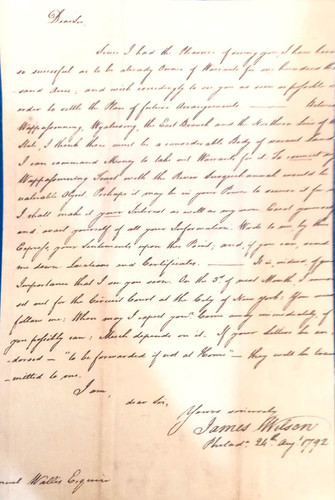 Dear Sir
Since I had the Pleasure of seeing you, I have been
so successful as to be already Owner of Warrants for one hundred thou
sand Acres; and wish exceedingly to see you as soon as possible in
order to settle the Plan of future Arrangements ——— Between
Wappasuning, Wyalusing, the East Branch and the Northern line of the
State, I think there must be a considerable Body of vacant Land
I can command Money to take out Warrants for it. To connect
Wappasuning Town with the River Susquehannah would be
valuable Object. Perhaps it may be in your Power to secure it for
I shall make it your Interest as well as my own. Exert yourself
and avail yourself of all your Information. Write to me by this
Express, your Sentiments upon this Point; and, if you can, send
me down Locations and Certificates. ——— It is indeed of
Importance that I see you soon. On the 3d of next Month I
set out for the Circuit Court at the City of New York: You
follow me: When may I expect you? Come away immediately, if
you possibly can: Much depends on it. If your letters be en
dorsed — "to be forwarded if not at Home" — they will be trans
mitted to me.
I am,
dear Sir,
Yours sincerely
James Wilson
Philada. 24th Augt 1792
Wallis Esquire